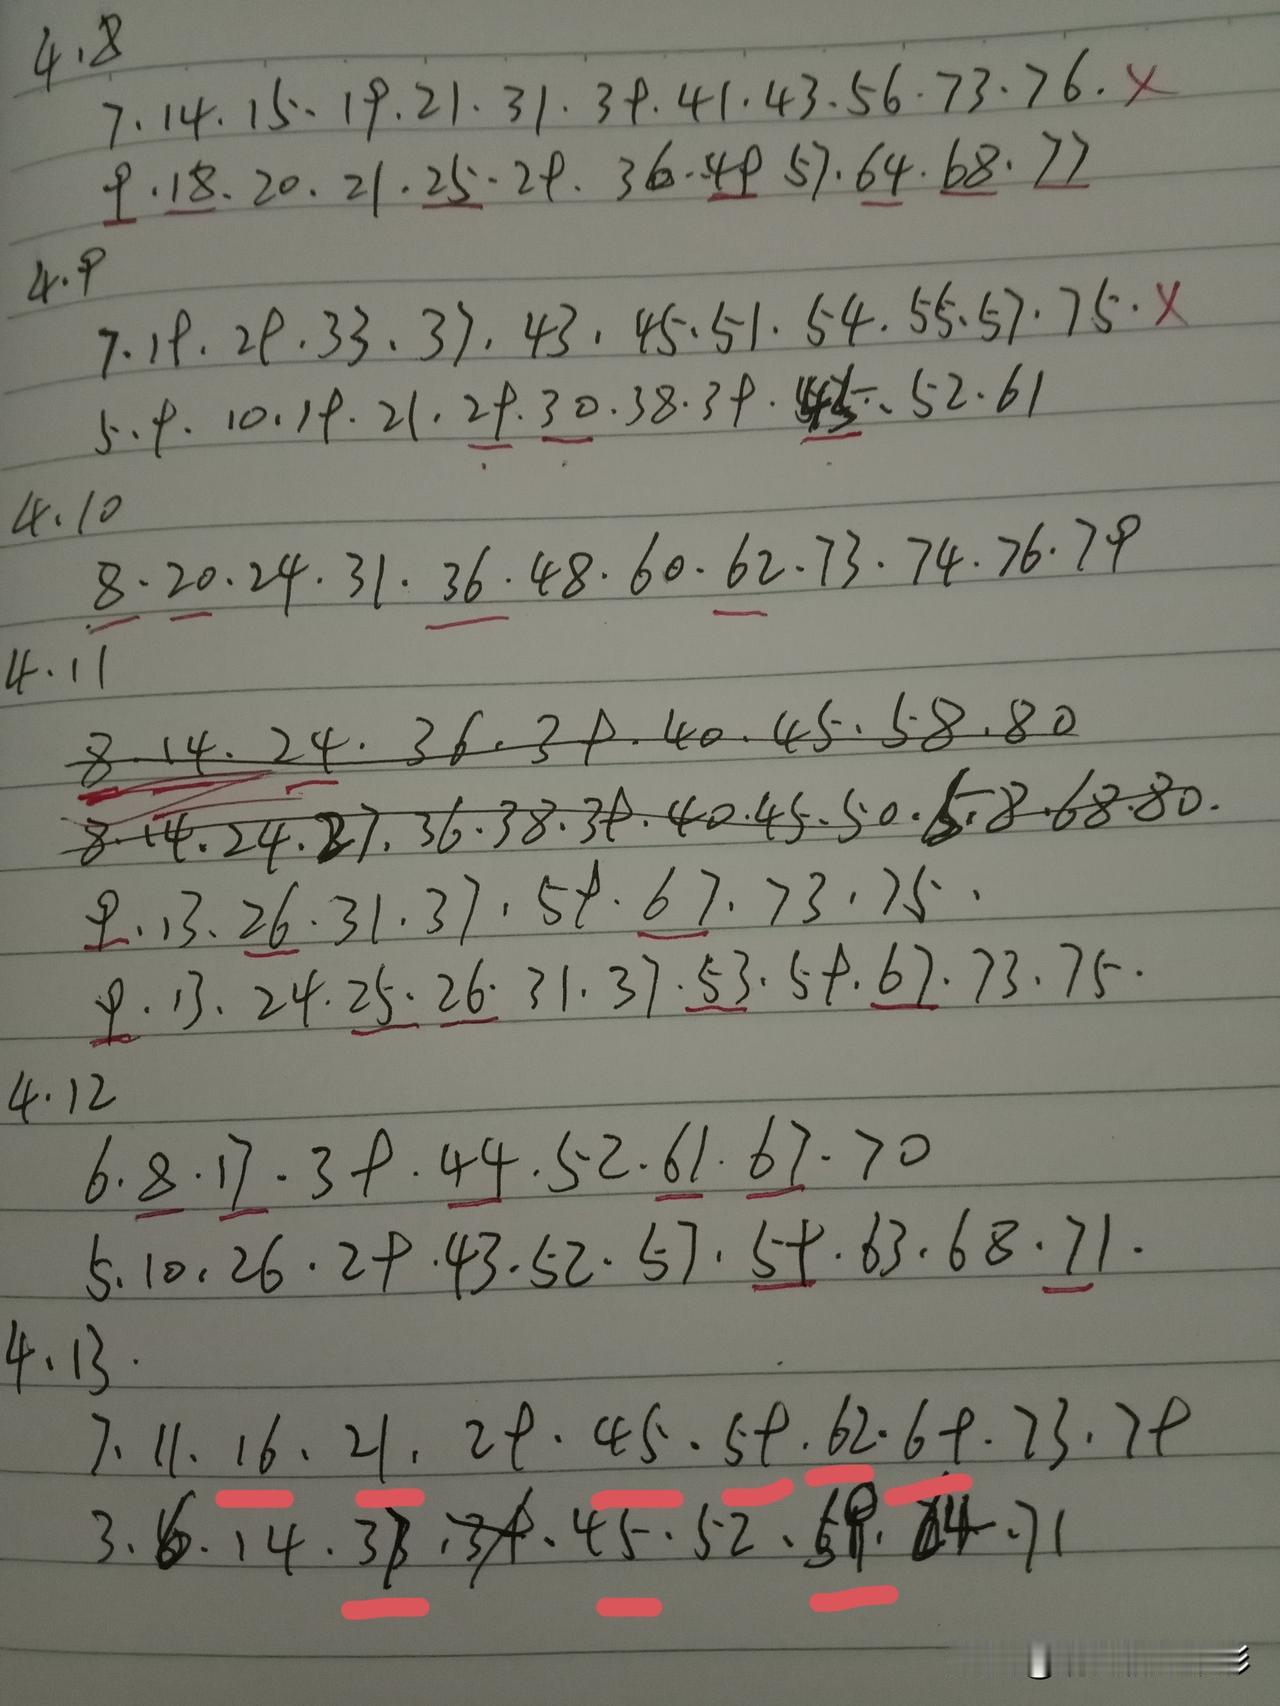 4.8
7.14.15.19.21.31.39.41.43.56.73.76.x
9.18.20.21.25.29.36.49 57.64.68.77
4.9
7.19.29.33.37.43.45.51.54.55.57.75.x
5.9.10.19.21.29.30.38.39.45.52.61
4.10
8.20.24.31.36.48.60.62.73.74.76.79
4.11
8.14.24.36.39.40.45.58.80
8.14.24.27.36.38.39.40.45.50.58.68.80.
9.13.26.31.37.59.67.73.75.
9.13.24.25.26.31.37.53.59.67.73.75.
4.12
6.8.17.39.44.52.61.67.70
5.10.26.29.43.52.57.59.63.68.71.
4.13.
7.11.16.21.29.45.59.62.69.73.79
3.6.14.33.39.45.52.59.71